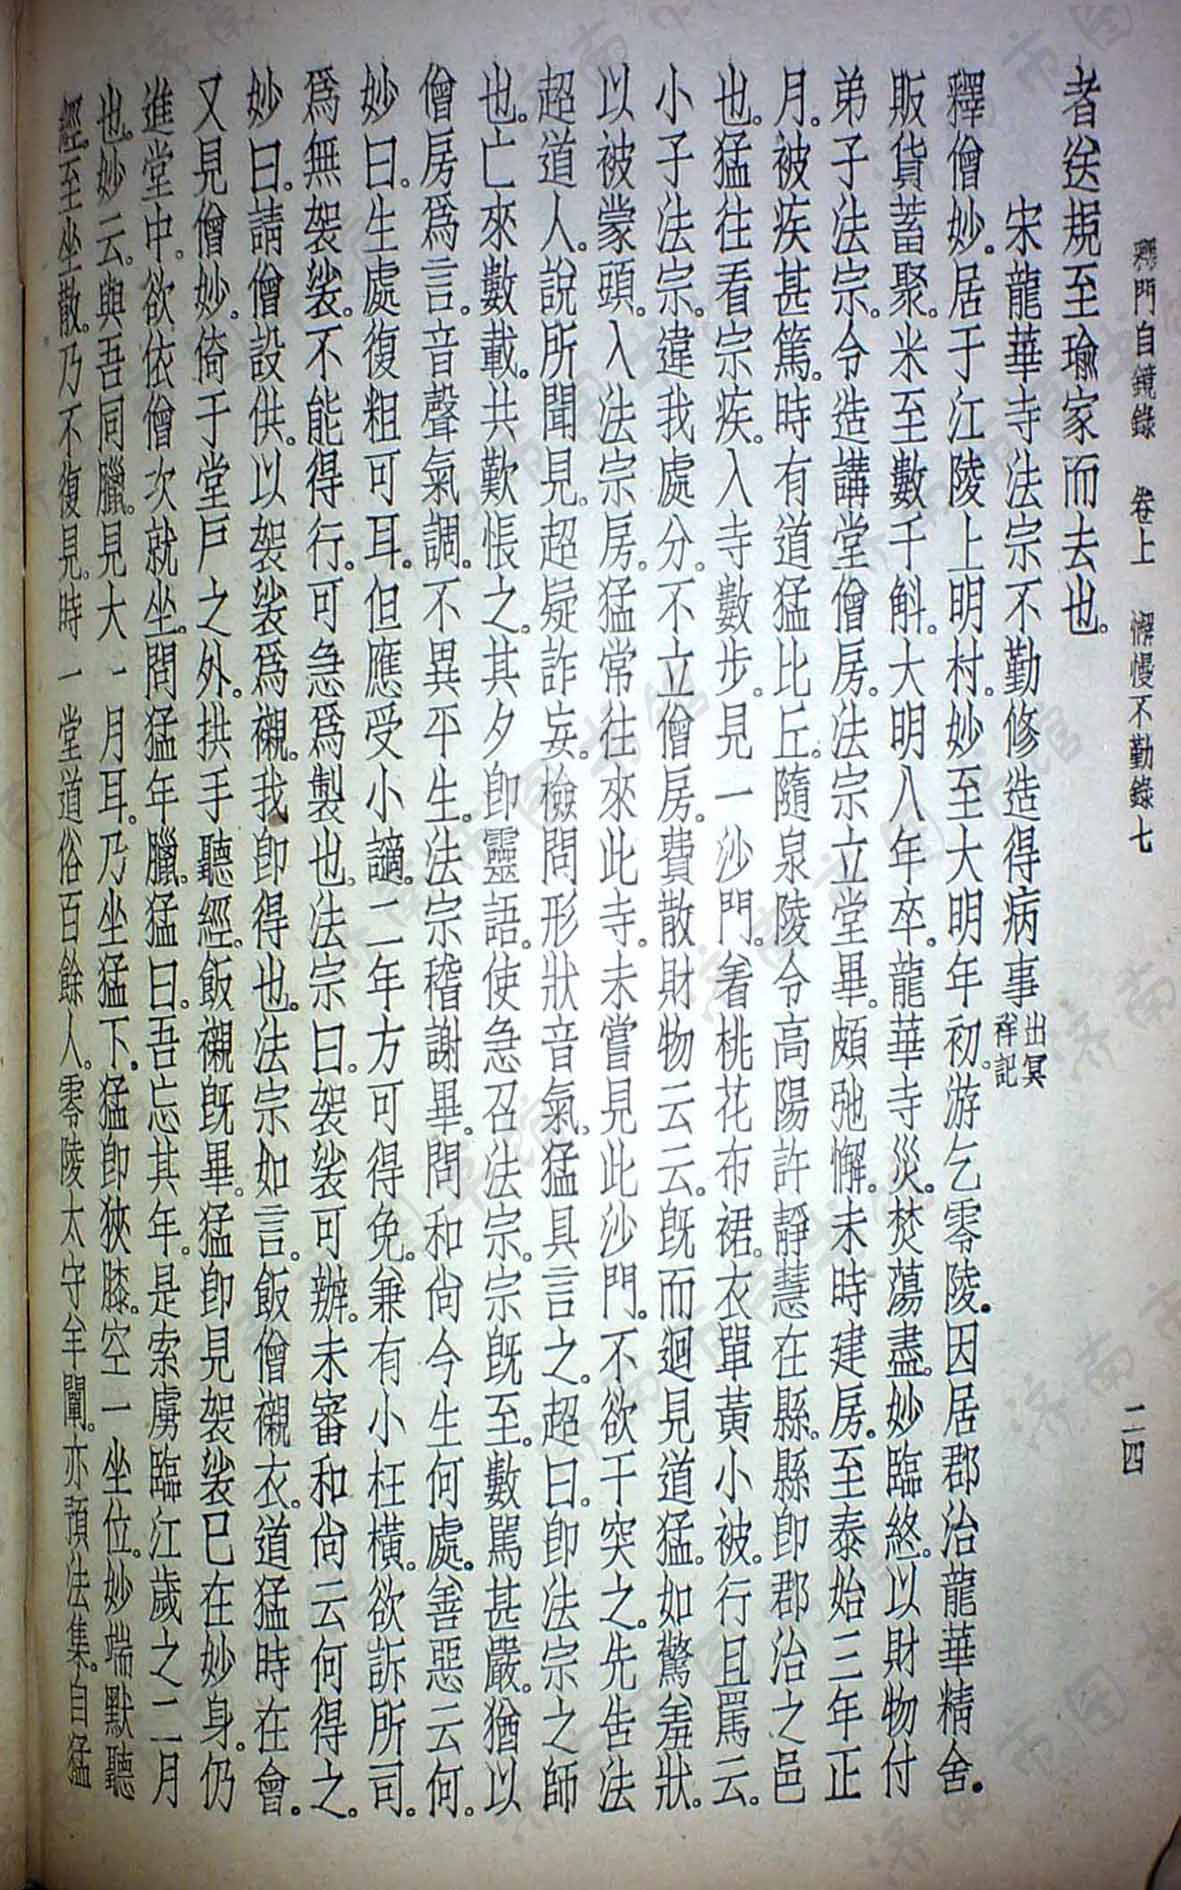 釋門自鏡錄　卷上　懈慢不勤錄七　二四
者送規至瑜家而去也。
宋龍華寺法宗不勤修造得病事出冥祥記
釋僧妙。居于江陵上明村。妙至大明年初。游乞零陵。因居郡治龍華精舍。
販貨蓄聚。米至數千斛。大明八年卒。龍華寺災。焚蕩盡。妙臨終。以財物付
弟子法宗。令造講堂僧房。法宗立堂畢。頗弛懈。未時建房。至泰始三年正
月。被疾甚篤。時有道猛比丘。隨泉陵令高陽許靜慧在縣。縣即郡治之邑
也。猛往看宗疾。入寺數步。見一沙門。着桃花布裙。衣單黃小被。行且罵云。
小子法宗。違我處分。不立僧房。費散財物云云。既而迴見道猛。如驚羞狀。
以被蒙頭。入法宗房。猛常往來此寺。未嘗見此沙門。不欲干突之。先告法
超道人。說所聞見。超疑詐妄。檢問形狀音氣。猛具言之。超曰。即法宗之師
也。亡來數載。共歎悵之。其夕即靈語。使急召法宗。宗既至。數罵甚嚴。猶以
僧房爲言。音聲氣調。不異平生。法宗稽謝畢。問和尙今生何處。善惡云何。
妙曰。生處復粗可耳。但應受小讁。二年方可得免。兼有小枉橫。欲訴所司。
爲無袈裟。不能得行。可急爲製也。法宗曰。袈裟可辦。未審和尙云何得之。
妙曰。請僧設供。以袈裟爲襯。我即得也。法宗如言。飯僧襯衣。道猛時在會。
又見僧妙。倚于堂戶之外。拱手聽經。飯襯既畢。猛即見袈裟已在妙身。仍
進堂中。欲依僧次就坐。問猛年臘。猛曰。吾忘其年。是索虜臨江歲之二月
也。妙云。與吾同臘。見大一月耳。乃坐猛下。猛即狹膝。空一坐位。妙端默聽
經。至坐散。乃不復見。時一堂道俗百餘人。零陵太守羊闡。亦預法集。自猛